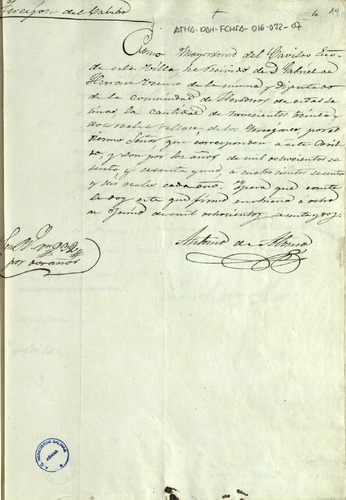 del Cavildo
ATHA-DAH-FCHSA-016-072-07
14
Como Mayordomo del Cavildo
de esta Villa he recivido de D. Gabriel de
Herran vecino de la misma y Diputado
de la comunidad de Herederos de estas Sa
linas la cantidad de novecientos treinta y
dos reales vellon, de los
Señor que corresponden a este Cavil
do, y son por los años de mil ochocientos se
senta, y sesenta y uno, a cuatrocientos sesenta
y seis reales cada uno. Y para que conste
le doy este que firmo en Añana a ocho
de Junio de mil ochocientos sesenta y dos.
Antonio de
Son
por dos años
AÑANA